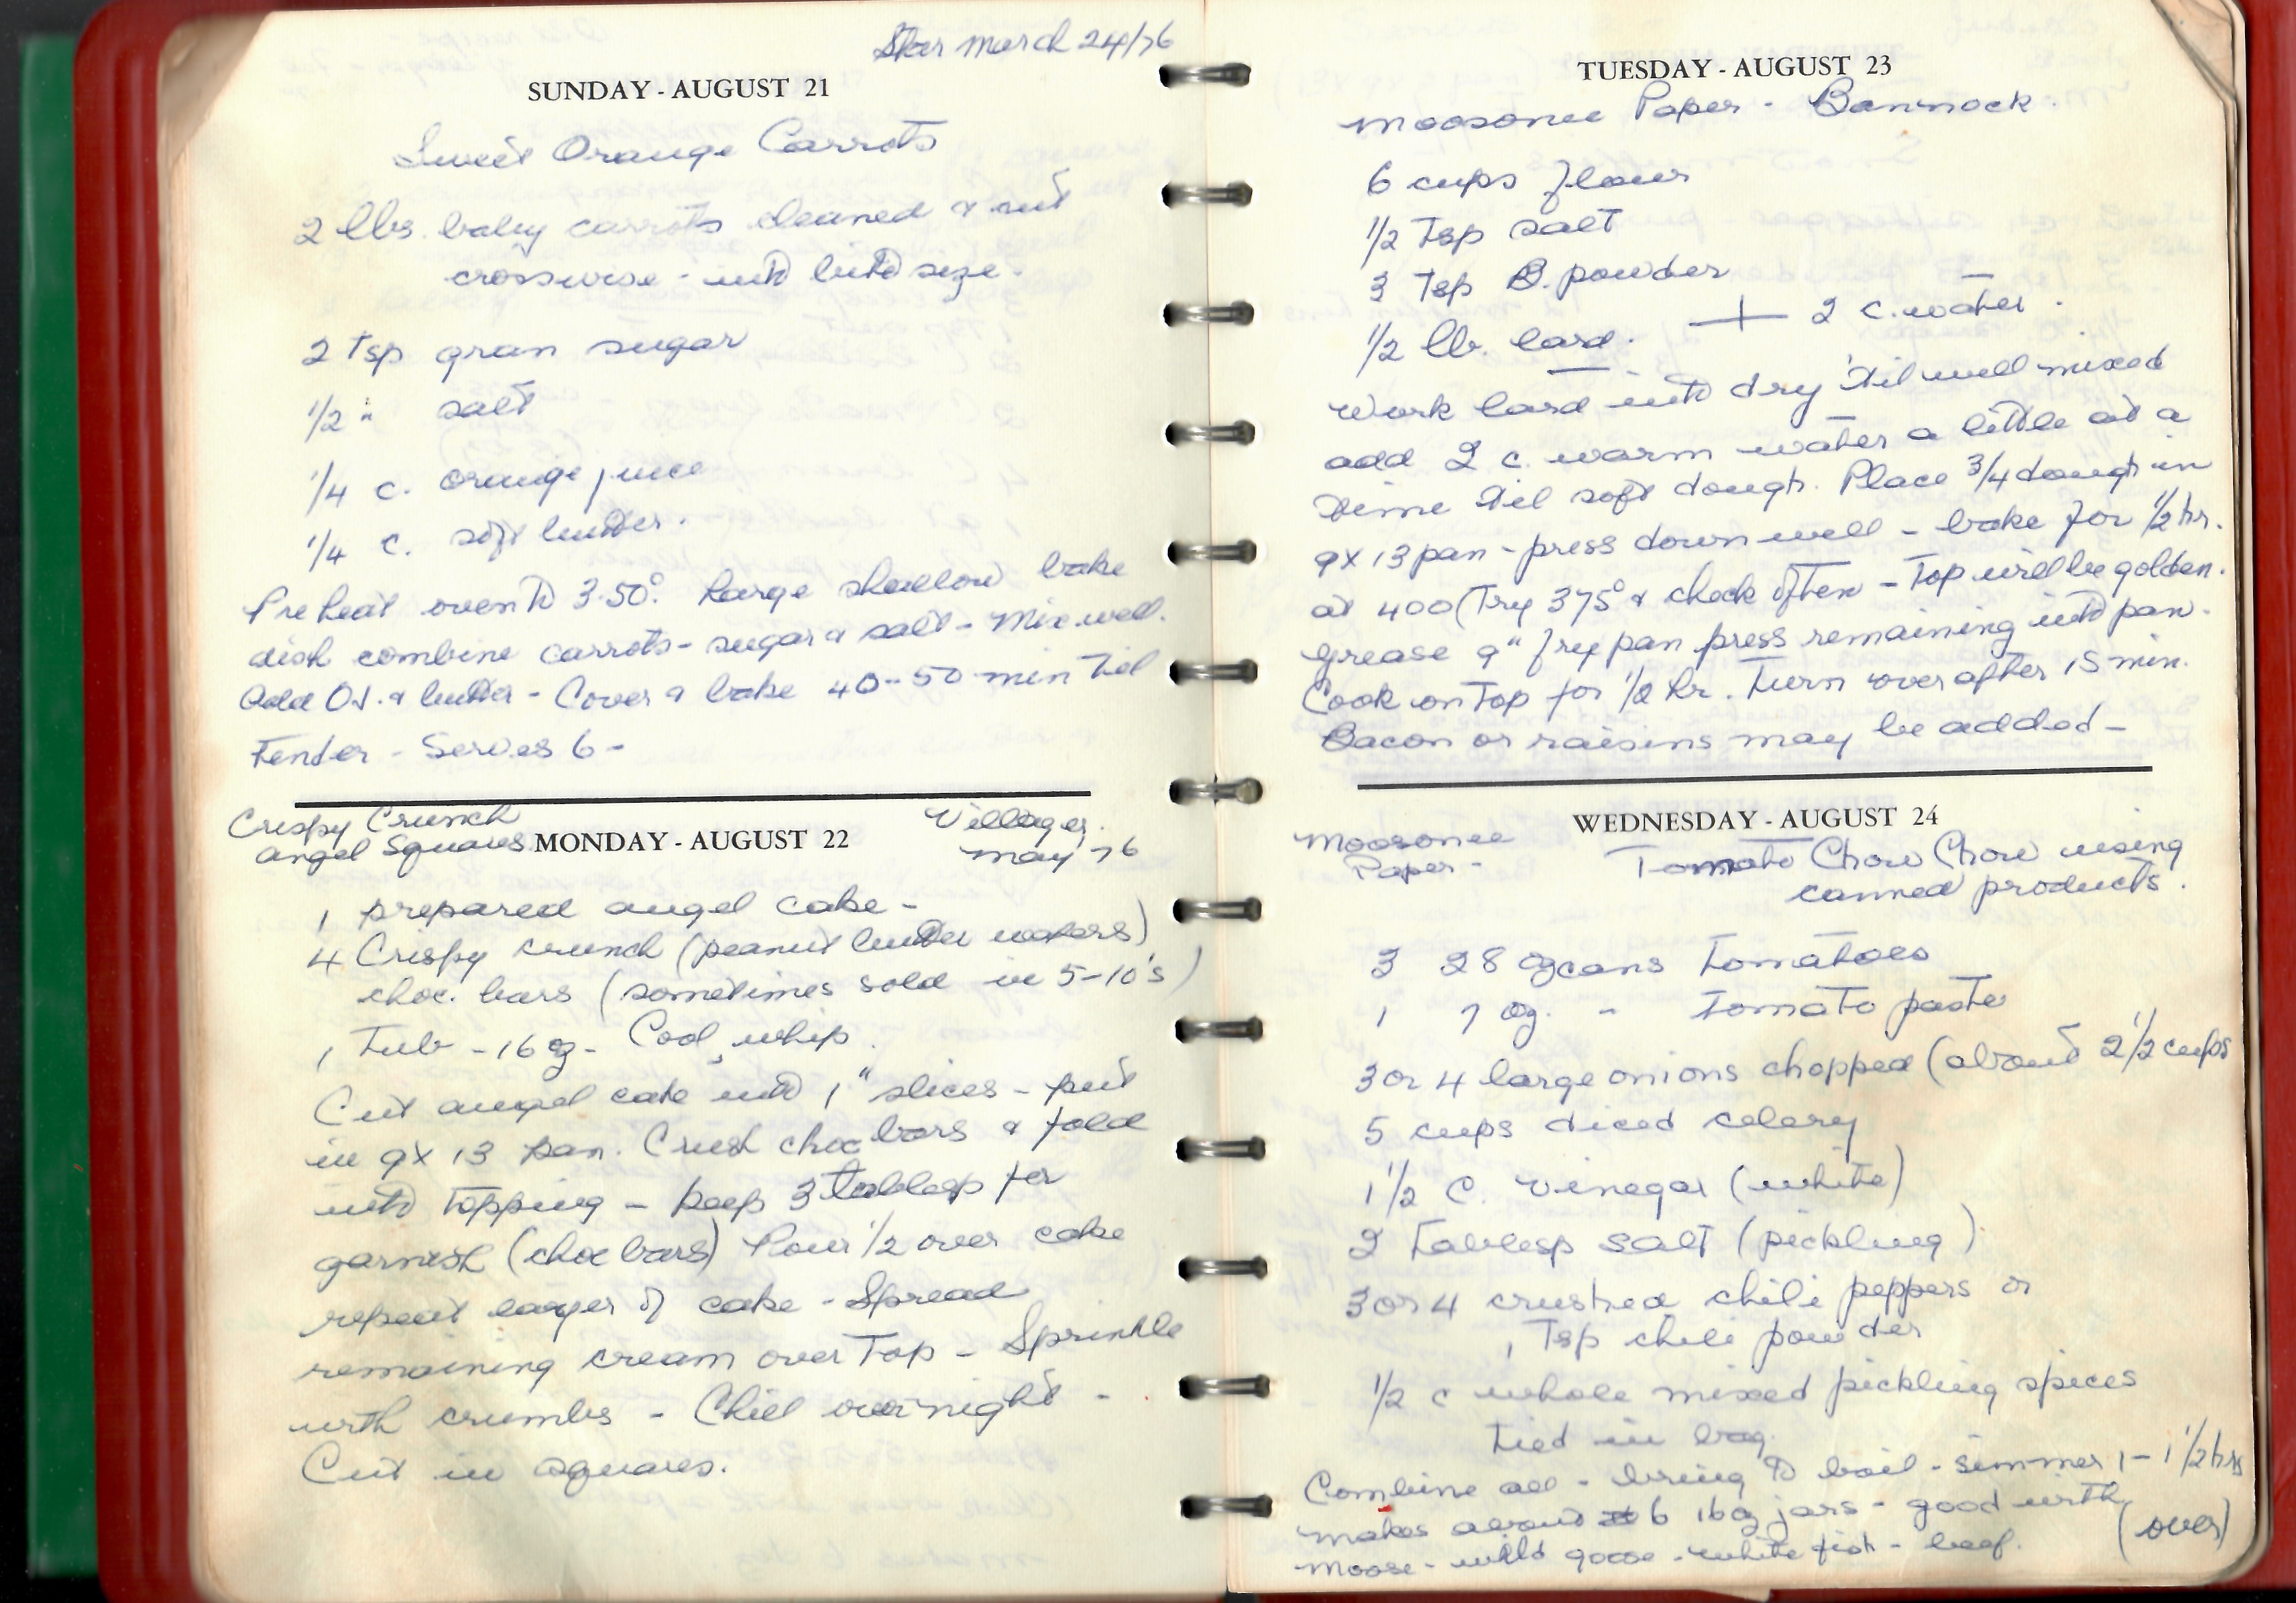 Star March 24/76
SUNDAY - AUGUST 21
Sweet Orange Carrots
2 lbs. baby carrots cleaned & cut
crosswise - into bite size.
2 tsp gran sugar
1/2 " salt
1/4 c. orange juice
1/4 c. soft butter.
Preheat oven to 350°. Large shallow bake
dish combine carrots - sugar & salt - Mix well.
Add O.J. & butter - Cover & bake 40-50 min til
Tender - Serves 6 -
Crispy Crunch
Angel Squares
MONDAY - AUGUST 22
Villager
May 76
1 prepared angel cake -
4 Crispy crunch (peanut butter wafers)
choc. bars (sometimes sold in 5-10's)
1 Tub - 16 oz - Cool whip.
Cut angel cake into 1" slices - put
in 9x13 pan. Crush choc bars & fold
into topping - keep 3 tablesp for
garnish (choc bars) Pour 1/2 over cake
repeat layer of cake - Spread
remaining cream over Top - Sprinkle
with crumbs - Chill overnight -
Cut in squares.
TUESDAY - AUGUST 23
Moosonee Paper - Bannock.
6 cups flour
1/2 Tsp salt
3 Tsp B. powder
1/2 lb. lard. + 2 c. water.
Work lard into dry 'til well mixed
add 2 c. warm water a little at a
time til soft dough. Place 3/4 dough in
9x13 pan - press down well - bake for 1/2 hr.
at 400 (Try 375° & check often - Top will be golden.
Grease 9" frypan press remaining into pan.
Cook on Top for 1/2 hr. Turn over after 15 min.
Bacon or raisins may be added -
WEDNESDAY - AUGUST 24
Moosonee
Paper -
Tomato Chow Chow using
canned products.
3 28 oz cans Tomatoes
1 7 oz. " Tomato paste
3 or 4 large onions chopped (about 2 1/2 cups
5 cups diced celery
1 1/2 C. vinegar (white)
2 Tablesp salt (pickling)
3 or 4 crushed chili peppers or
1 Tsp chili powder
1/2 c whole mixed pickling spices
tied in bag.
Combine all - bring to boil - simmer 1 - 1 1/2 hrs
Makes about 6 16 oz jars - good with
Moose - wild goose - white fish - beef.
(over)